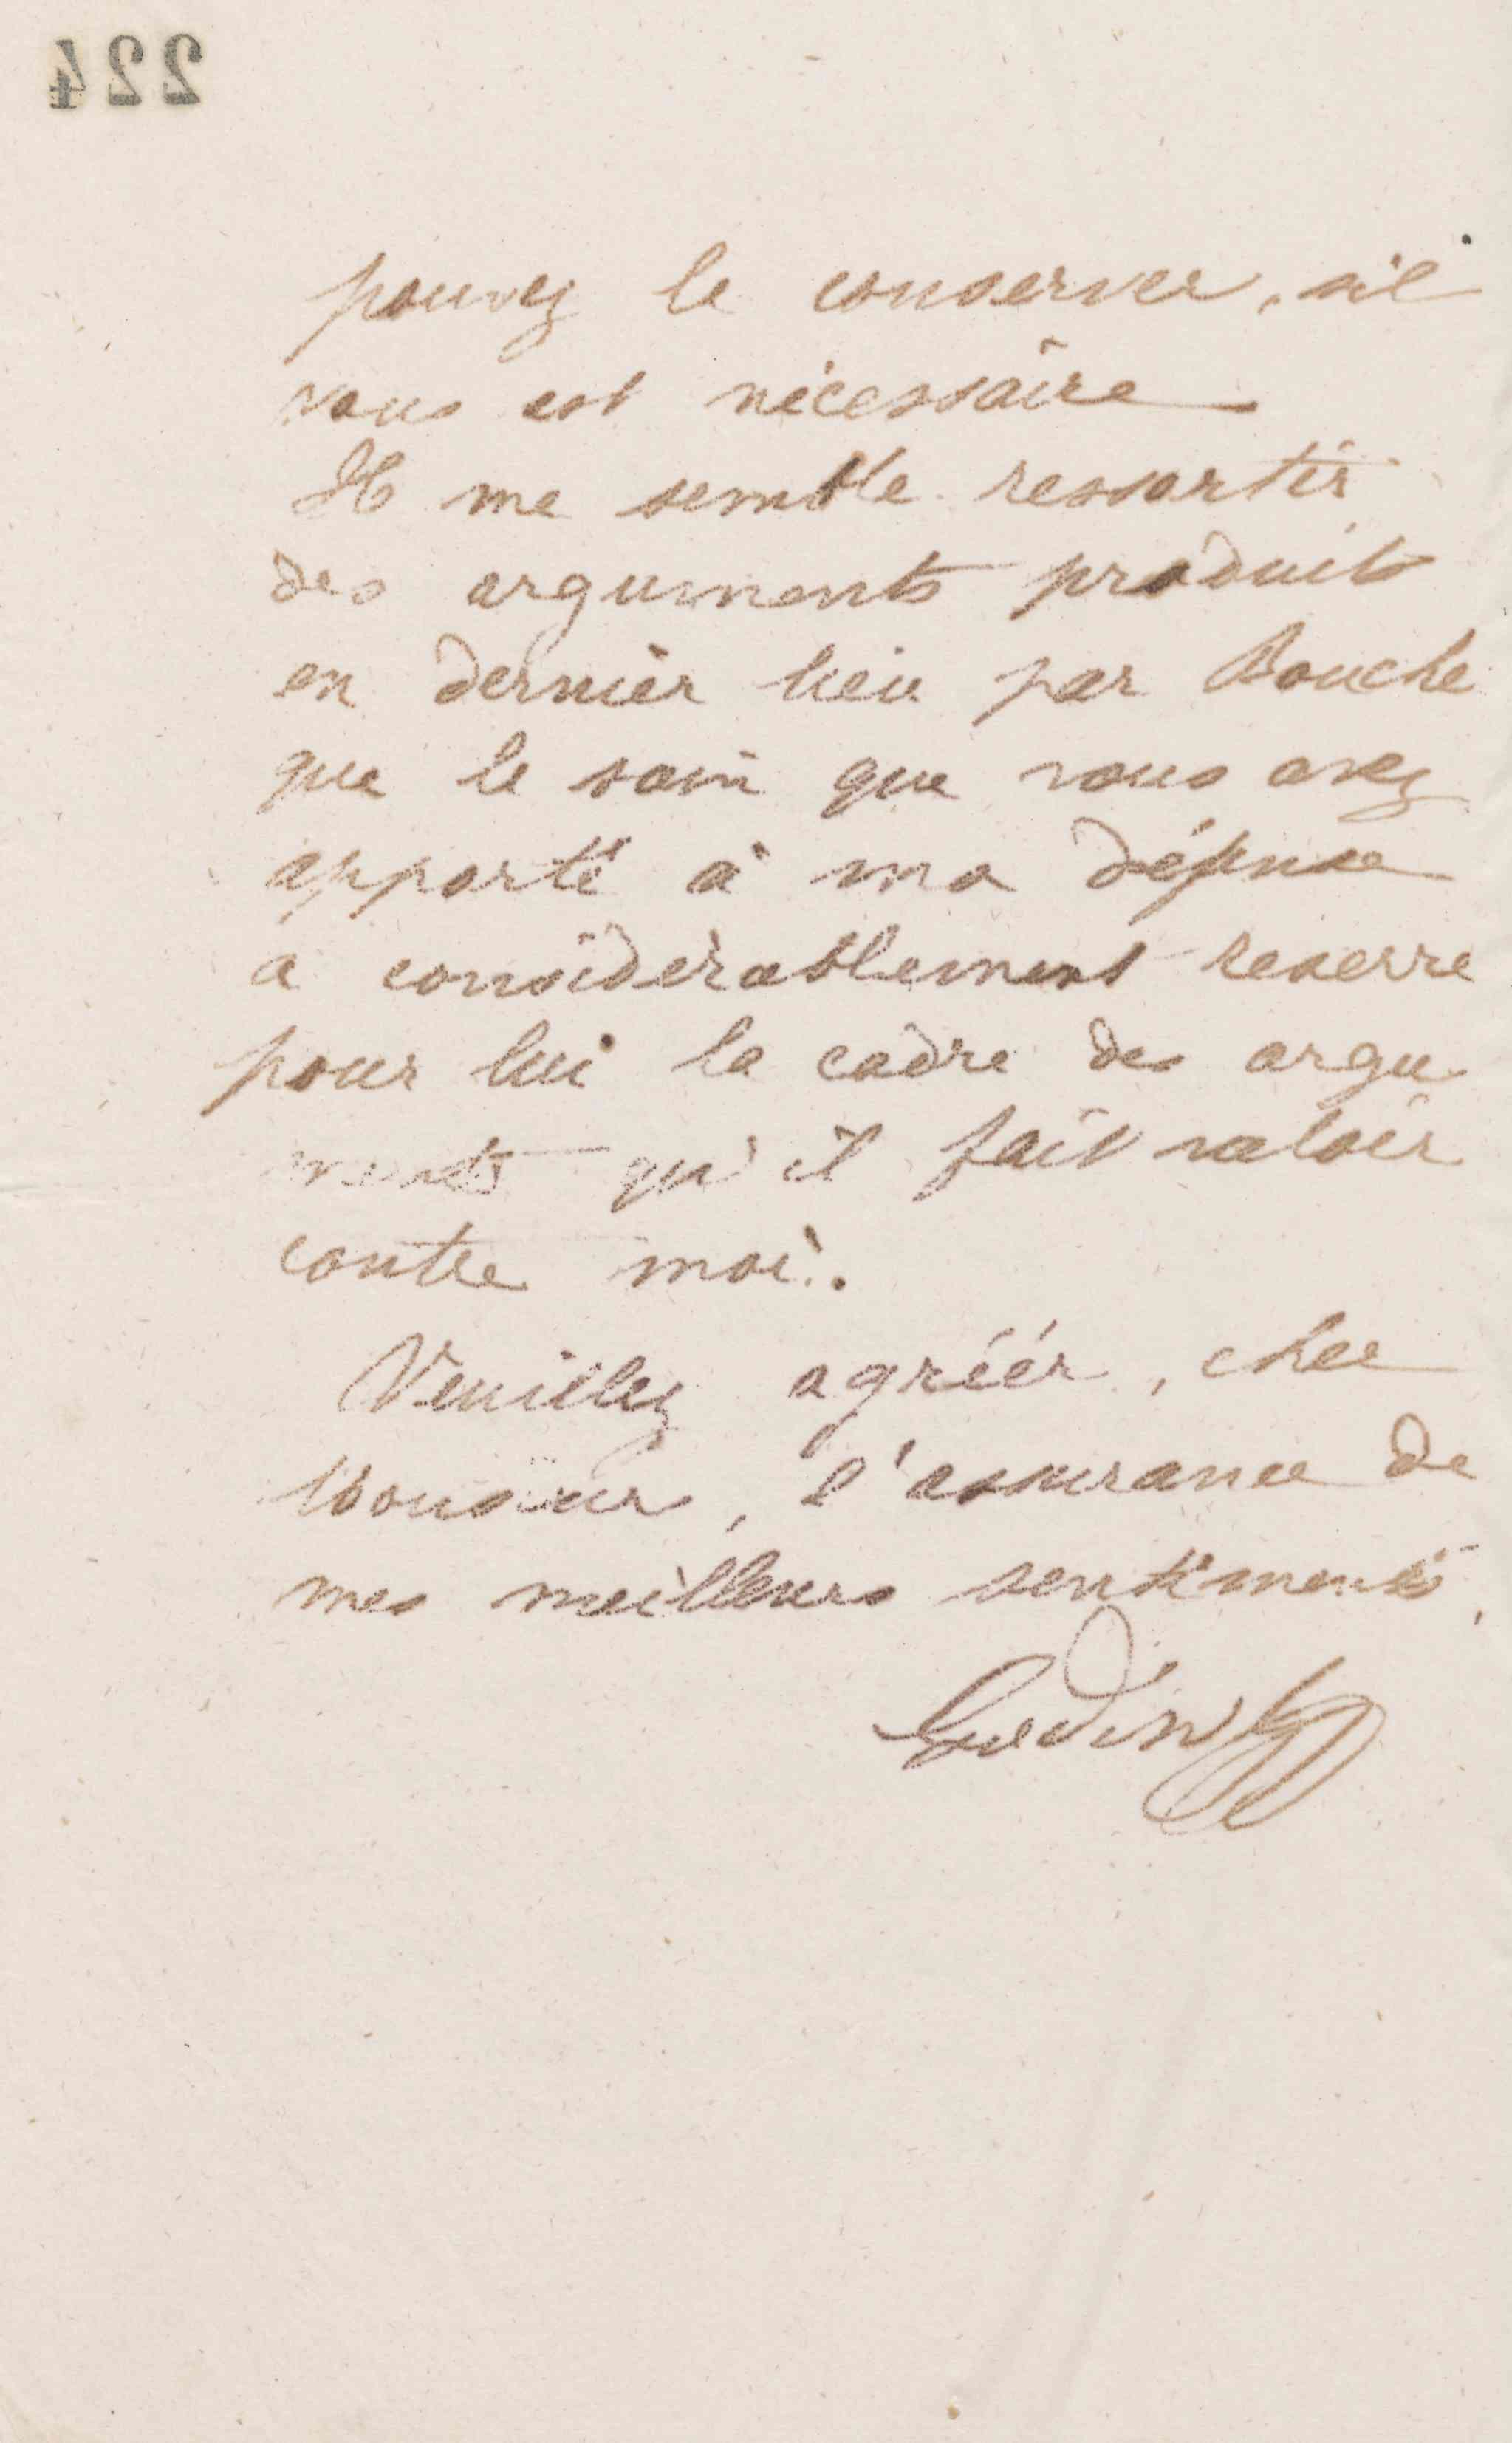 224
pouvez le conserver, s'il
vous est nécessaire
Il me semble ressortir
des arguments produits
en dernier lieu par Bouche
que le soin que vous avez
apporté à ma défense
a considérablement reserré
pour lui le cadre des argu
ments qu'il fait valoir
contre moi.
Veuillez agréér, cher
Monsieur, l'assurance de
mes meilleurs sentiments,
Godin